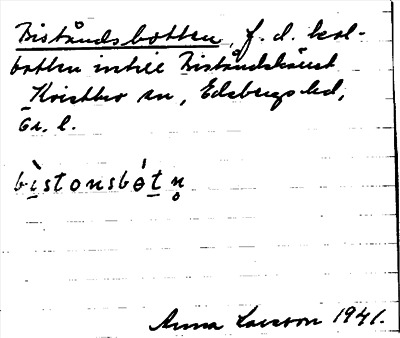 Biståndsbotten, f. d. kol-
botten intill Biståndskärret
Kvistbro sn, Edsbergs hd,
Ör. l.
bìstonsbót n̥
Anna Larsson 1941.